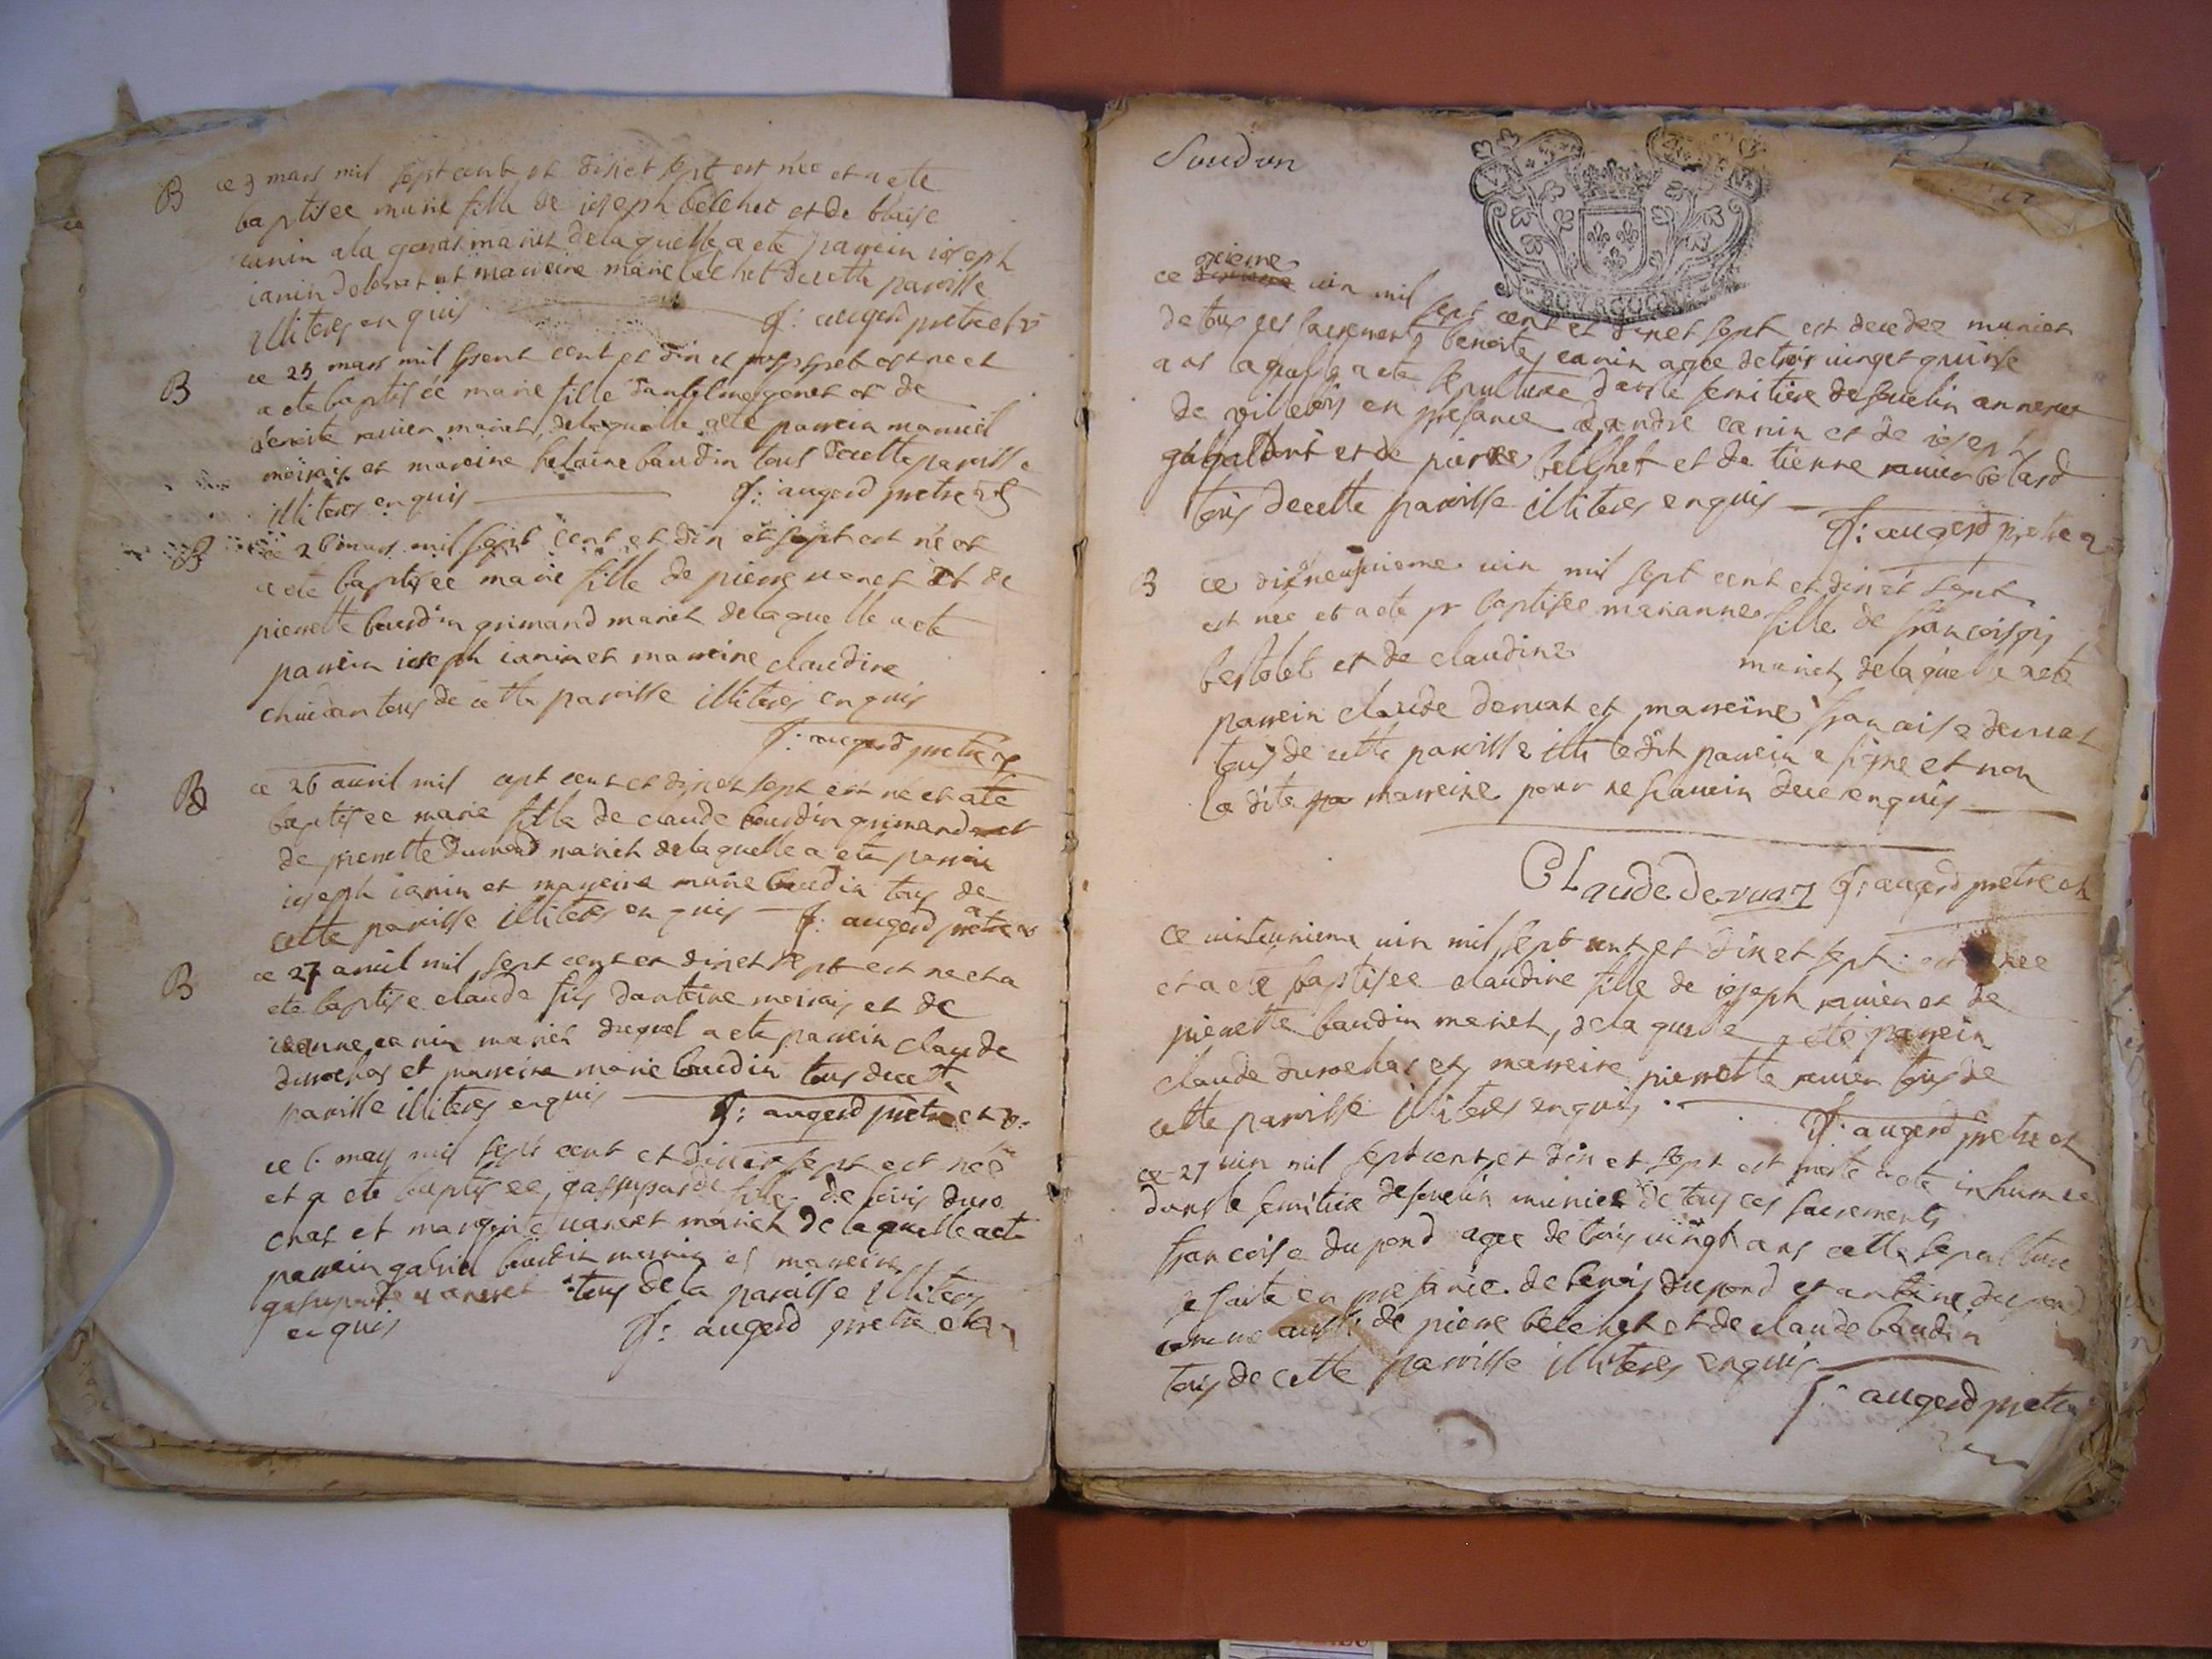 B ce 3 mars mil sept cent et dix et sept est née et a ete
baptisee marie fille de ioseph belchet et de blaise
ianin a la marier de laquelle a ete parrein ioseph
ianin et marreine marie belchet de cette paroisse
illiteres enquis f: augerd pretre et
B ce 25 mars mil sept cent et dix et sept est ne et
a ete baptisée marie fille et de
benoite mariets de laquelle a ete parrein manuel
moirais et mareine helaine baudin tous de cette paroisse
illiteres enquis f: augerd pretre
B ce 26 mars mil sept cent et dix et sept est né et
a ete baptisee marie fille de pierre uaret et de
pierrette baudin grimand mariets de laquelle a ete
parrein ioseph ianin et marreine claudine
tous de cette paroisse illiteres enquis
f: augerd pretre
B ce 26 auril mil sept cent et dix et sept est né et a ete
baptisee marie fille de claude baudin grimand et
de pierrette mariets de laquelle a ete parrein
ioseph ianin et marreine marie baudin tous de
cette paroisse illiteres enquis f: augerd pretre
B ce 27 auril mil sept cent et dix et sept est ne et a
ete baptise claude fils dantoine moirais et de
ieanne ianin mariets duquel a ete parrein claude
durochas et marreine marie baudin tous de cette
paroisse illiteres enquis f: augerd pretre et
ce may mil sept cent et dix et sept est née
et a ete baptisee gasparde fille de louis duro
chas et uaret mariets de laquelle a ete
parrein gabriel baudin et mareine
gasparde uaret tous de la paroisse illiteres
enquis f: augerd pretre
Soudon
BOURGOGNE
onzieme
ce iuin mil sept cent et dix et sept est decedee munies
de tous ses sacrements benoite ianin agée de trois uingt et quinse
ans laquelle a ete sepulture dans le semitiere de souclin annexe
de villebois en presance dandre ianin et de ioseph
et de pierre bellchet et de tienne rauier
tous de cette paroisse illiteres enquis
f: augerd pretre
B ce dixneufuieme iuin mil sept cent et dix et sept
est née et a ete pr baptisee marianne fille de françois
bertolet et de claudine mariets de laquelle a ete
parrein claude deruat et marreine françoise deruat
tous de cette paroisse ledit parrein a signe et non
la dite marreine pour ne scauoir de ce enquis
CLaude deruaz f: augerd pretre et
ce uinteunieme iuin mil sept cent et dix et sept est née
et a ete baptisee claudine fille de ioseph rauier et de
pierrette baudin mariets, de laquelle a ete parrein
claude durochas et marreine pierrette rauier tous de
cette paroisse illiteres enquis
f: augerd pretre et
ce 27 iuin mil sept cent et dix et sept est morte a ete inhumée
dans le semitiere de souclin munies de tous ces sacrements
françoise dupond agee de trois uingt ans cette sepulture
a faite en presance de benois dupond et antoine dupond
comme aussi de pierre belchet et de claude baudin
tous de cette paroisse illiteres enquis
f: augerd pretre